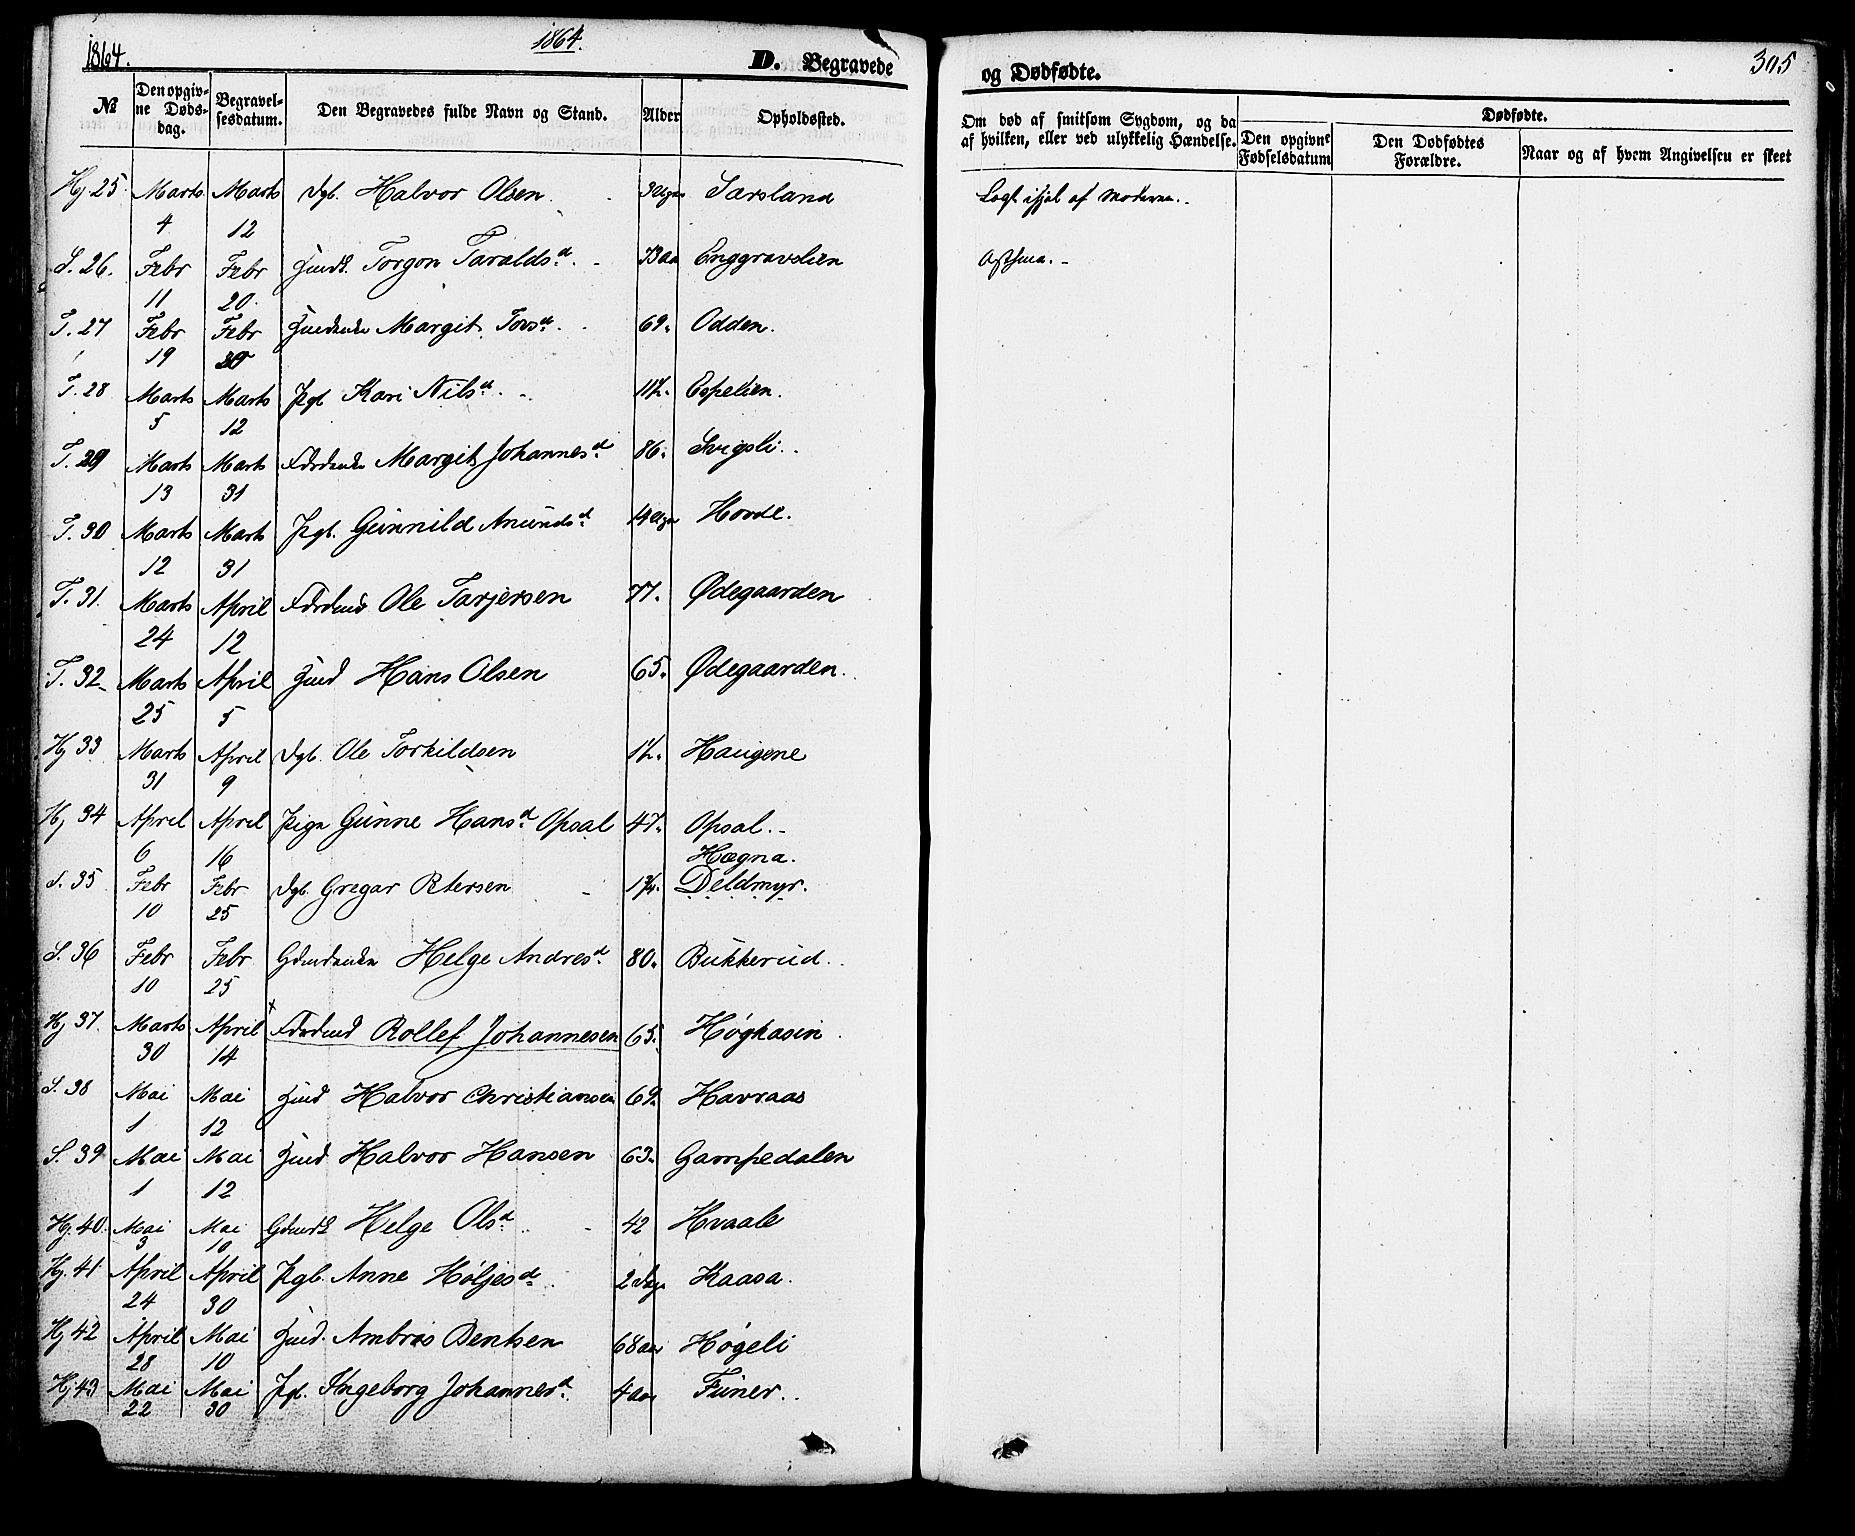 1864.
1864.
D. Begravede
og Dødfødte.
305
№
Den opgiv-
ne Døds-
dag.
Begravel-
sesdatum.
Den Begravedes fulde Navn og Stand.
Alder
Opholdssted.
Om død af smitsom Sygdom, og da
af hvilken, eller ved ulykkelig Hændelse.
Dødfødte.
Den opgivne
Fødselsdatum
Den Dødfødtes
Forældre.
Naar og af hvem Angivelsen er skeet
Hj 25 Marts 4 Marts 12 Dgb. Halvor Olsen. Særsland Lagt ihjel af Moderen.
S. 26. Febr 11 Febr 20. Torgon Taraldsd. 73 aar Enggravslien Asthma.
T. 27 Febr 19 Febr Margit Torsd. 69. Odden.
T. 28 Marts 5 Marts 12 Pgb Kari Nilsd. Espelien.
T. 29 Marts 13 Marts 31 Margit Johannesd. 86. Svigsli.
T. 30 Marts 12 Marts 31 Pgb. Gunnild Anundsd. Hovde.
T. 31. Marts 24 April 12 Ole Tarjersen 77. Ødegaarden
T. 32 Marts 25 April 5 Hmd Hans Olsen 65. Ødegaarden.
Hj 33 Marts 31 April 9 Dgb. Ole Torkildsen Haugene
Hj 34 April 6 April 16 Pige Gunne Hansd. Opsal 47. Opsal.
Hægna.
S. 35 Febr 10 Febr 25 Dgb. Gregar Petersen 1¾. Deldmyr.
S. 36 Febr 10 Febr. 25 Gdmdenke Helge Andresd. 80. Bukkerud.
Hj 37. Marts 30 April 14 Rollef Johannesen 65. Høgkasin.
S. 38 Mai 1 Mai 12 Hmd Halvor Christiansen 69. Havraas
S. 39 Mai 1 Mai 12 Hmd Halvor Hansen 63. Gampedalen
Hj. 40. Mai 3 Mai 10 Helge Olsd. 42 Hvaale
Hj. 41 April 24 April 30 Pgb. Anne Høljesd. 2 Dage Kaasa.
Hj 42 April 28 Mai 10 Hmd. Ambros Bentsen 68 aar Høgeli
Hj. 43 Mai 22 Mai 30 Pgb. Ingeborg Johannesd. 4 aar Funer.